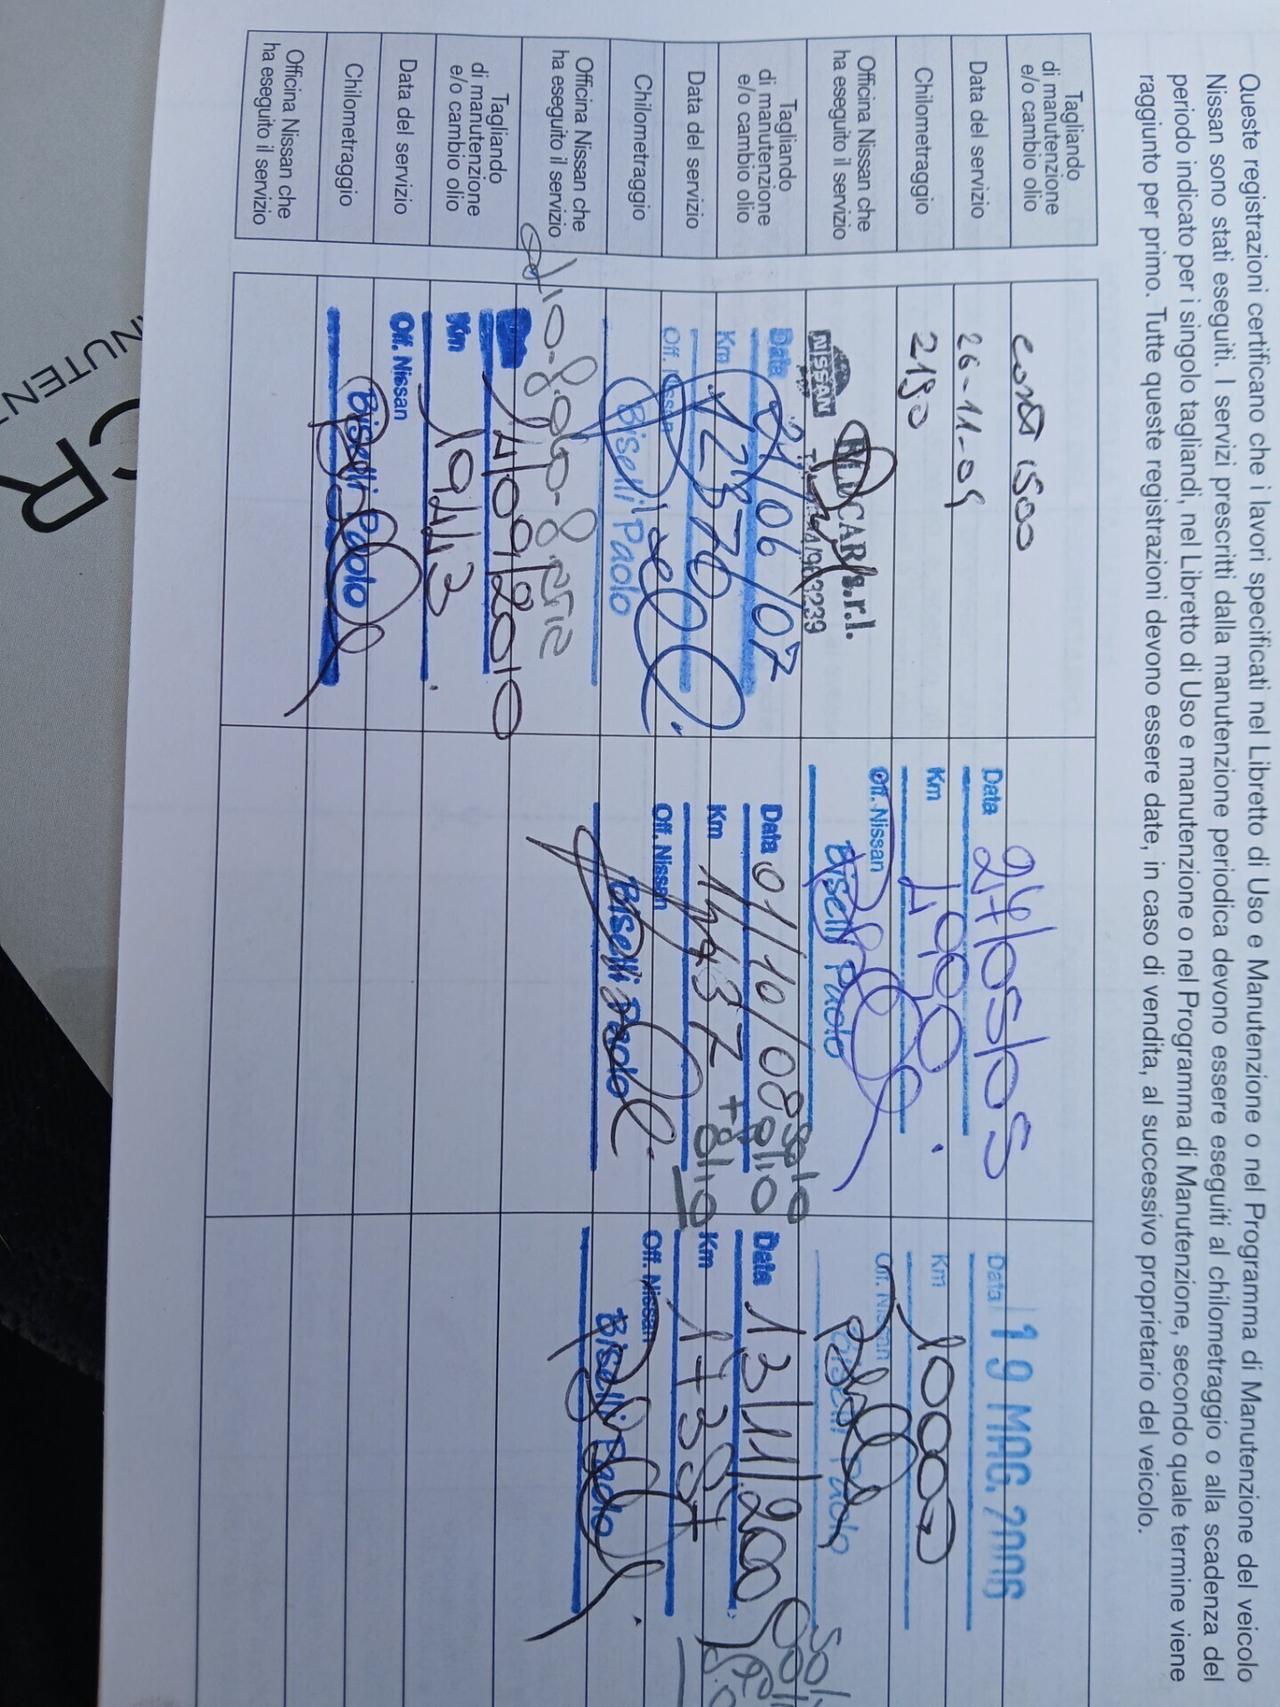 Queste registrazioni certificano che i lavori specificati nel Libretto di Uso e Manutenzione o nel Programma di Manutenzione del veicolo
Nissan sono stati eseguiti. I servizi prescritti dalla manutenzione periodica devono essere eseguiti al chilometraggio o alla scadenza del
periodo indicato per i singolo tagliandi, nel Libretto di Uso e manutenzione o nel Programma di Manutenzione, secondo quale termine viene
raggiunto per primo. Tutte queste registrazioni devono essere date, in caso di vendita, al successivo proprietario del veicolo.
Tagliando
di manutenzione
e/o cambio olio
1500
Data del servizio
26-11-04
Data 24/05/05
Data 19 MAG. 2006
Chilometraggio
2190
Km 4900
Km 10000
Officina Nissan che
ha eseguito il servizio
NISSAN
CAR s.r.l.
Off. Nissan
Biselli Paolo
Off. Nissan
Biselli Paolo
Tagliando
di manutenzione
e/o cambio olio
Data 21/06/07
Data 01/10/08 solo
olio
Data 13/11/200
Data del servizio
Km 12370
Km 14437 + olio
Km 17397
Chilometraggio
Off. Nissan
Biselli Paolo
Off. Nissan
Biselli Paolo
Off. Nissan
Biselli Paolo
Officina Nissan che
ha eseguito il servizio
Tagliando
di manutenzione
e/o cambio olio
Data 14/09/2010
Km 19443
Data del servizio
Off. Nissan
Chilometraggio
Biselli Paolo
Officina Nissan che
ha eseguito il servizio